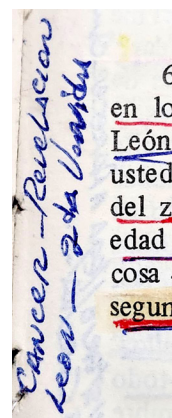 Cancer - Revelación
Leon - 2da Venida
6
en lo
León
usted
del z
edad
cosa
segun